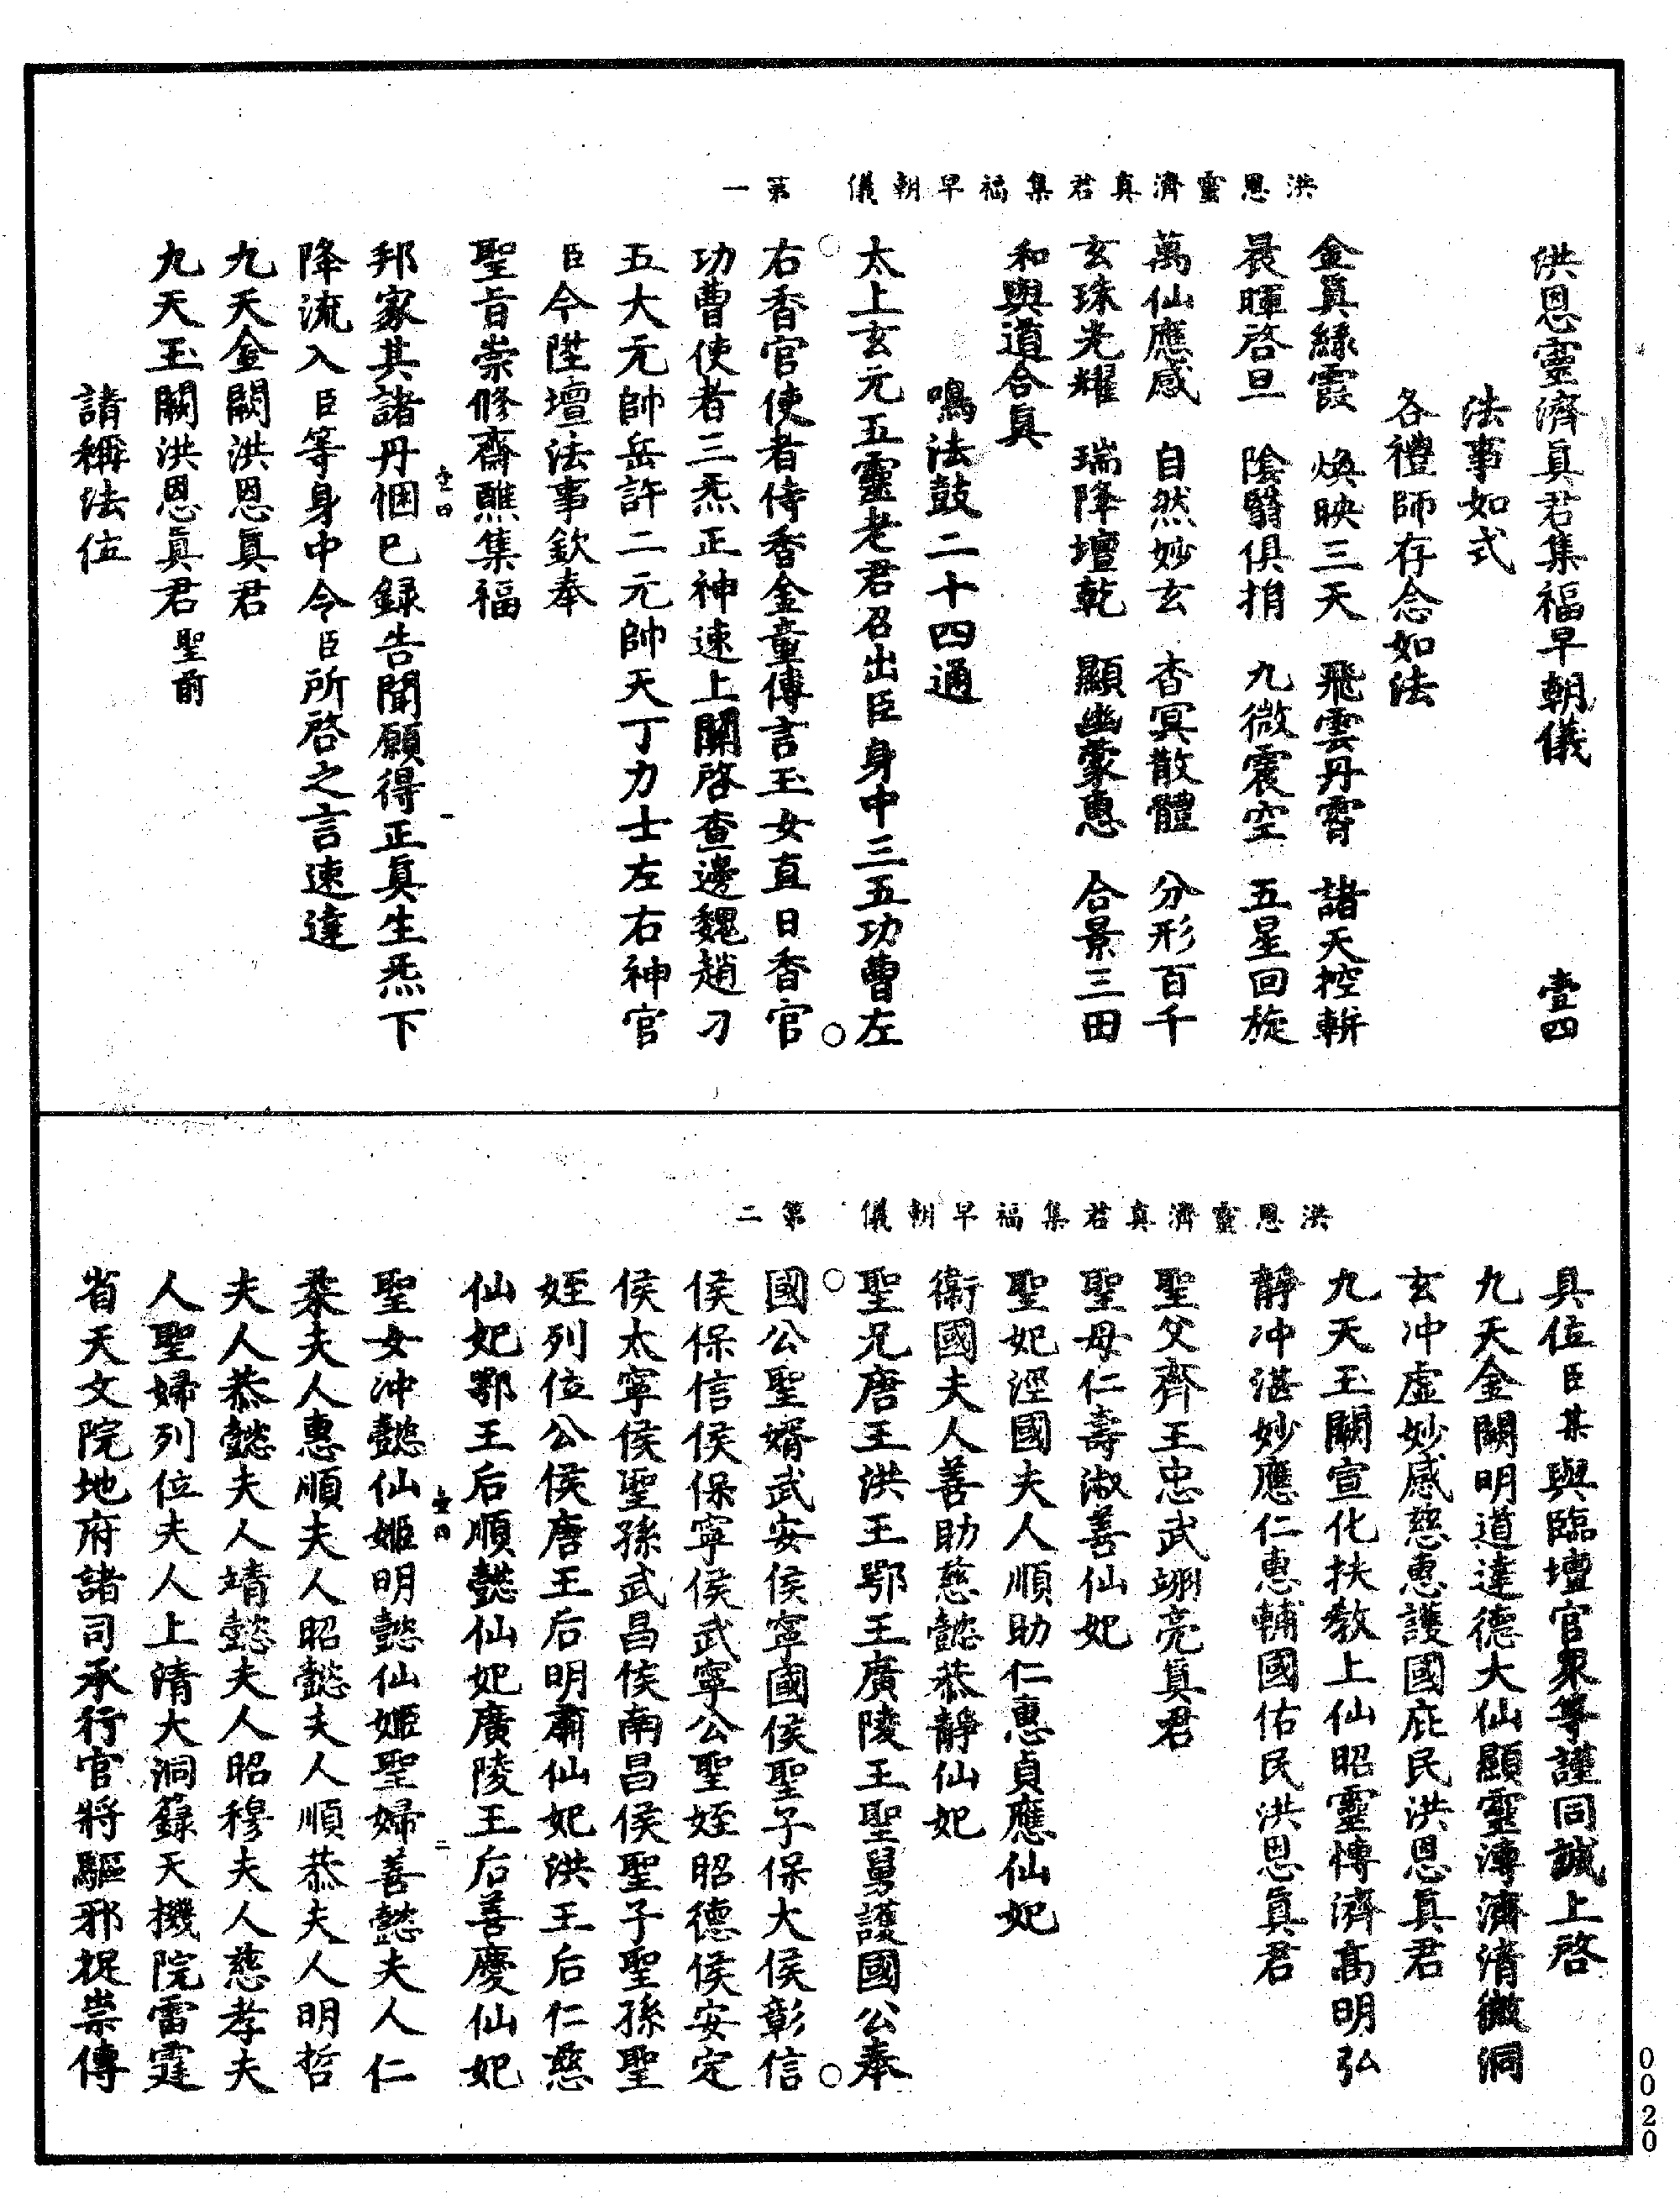 洪恩靈濟真君集福早朝儀　第一
洪恩靈濟真君集福早朝儀　壹四
法事如式
各禮師存念如法
金真絲霞　煥映三天　飛雲丹霄　諸天控軿
晨暉啓旦　陰翳俱捐　九微震空　五星回旋
萬仙應感　自然妙玄　杳冥散體　分形百千
玄珠光耀　瑞降壇乾　顯幽蒙惠　合景三田
和與道合真
鳴法鼓二十四通
太上玄元五靈老君召出臣身中三五功曹左
右香官使者侍香金童傳言玉女直日香官
功曹使者三炁正神速上關啓查邊魏趙刁
五大元帥岳許二元帥天丁力士左右神官
臣今陞壇法事欽奉
聖旨崇修齋醮集福
邦家其諸丹悃已錄告聞願得正真生炁下
降流入臣等身中令臣所啓之言速達
九天金闕洪恩真君
九天玉闕洪恩真君聖前
請稱法位
壹四　一
洪恩靈濟真君集福早朝儀　第二
具位臣某與臨壇官衆等謹同誠上啓
九天金闕明道達德大仙顯靈溥濟清微洞
玄冲虛妙感慈惠護國庇民洪恩真君
九天玉闕宣化扶教上仙昭靈博濟高明弘
靜冲湛妙應仁惠輔國佑民洪恩真君
聖父齊王忠武翊亮真君
聖母仁壽淑善仙妃
聖妃涇國夫人順助仁惠貞應仙妃
衞國夫人善助慈懿恭靜仙妃
聖兄唐王洪王鄂王廣陵王聖舅護國公奉
國公聖婿武安侯寧國侯聖子保大侯彰信
侯保信侯保寧侯武寧公聖姪昭德侯安定
侯太寧侯聖孫武昌侯南昌侯聖子聖孫聖
姪列位公侯唐王后明肅仙妃洪王后仁慈
仙妃鄂王后順懿仙妃廣陵王后善慶仙妃
聖女冲懿仙姬明懿仙姬聖婦善懿夫人仁
恭夫人惠順夫人昭懿夫人順恭夫人明哲
夫人恭懿夫人靖懿夫人昭穆夫人慈孝夫
人聖婦列位夫人上清大洞籙天機院雷霆
省天文院地府諸司承行官將驅邪捉祟傳
壹四　二
0020